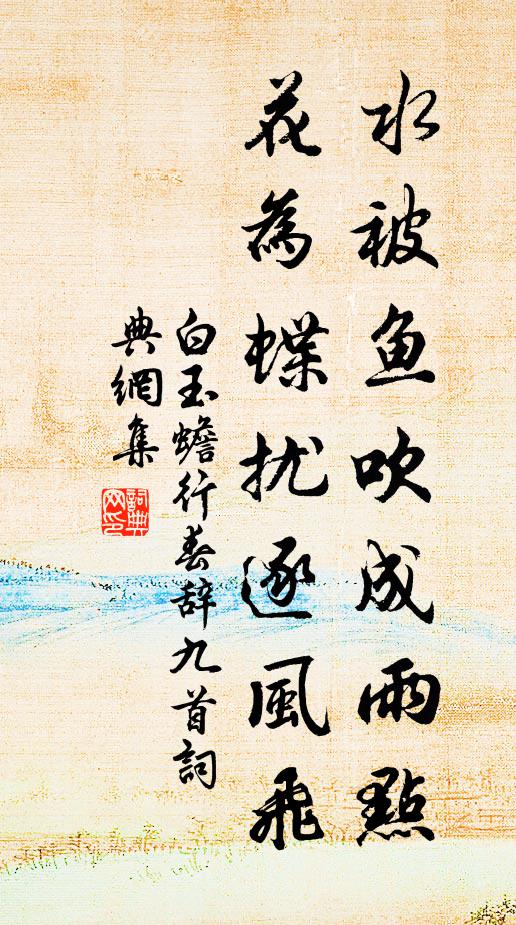 水被魚吹成雨點
花為蝶扰逐風飛
白玉蟾行春辞九首詞
典網集
詞典網印